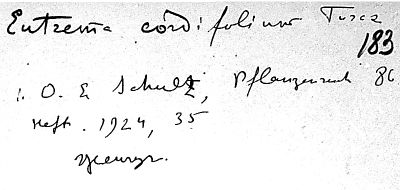 Eutrema cordifolium Turcz
183
: O. E Schultz, Pflanzenreich 86
Heft. 1924, 35